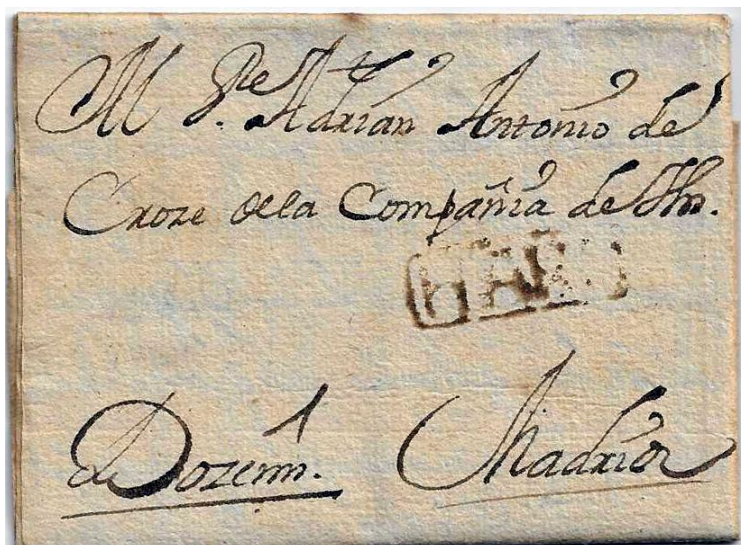 M P.e Adrian Antonio de
Croze de la Compañia de Jhs.
Madrid